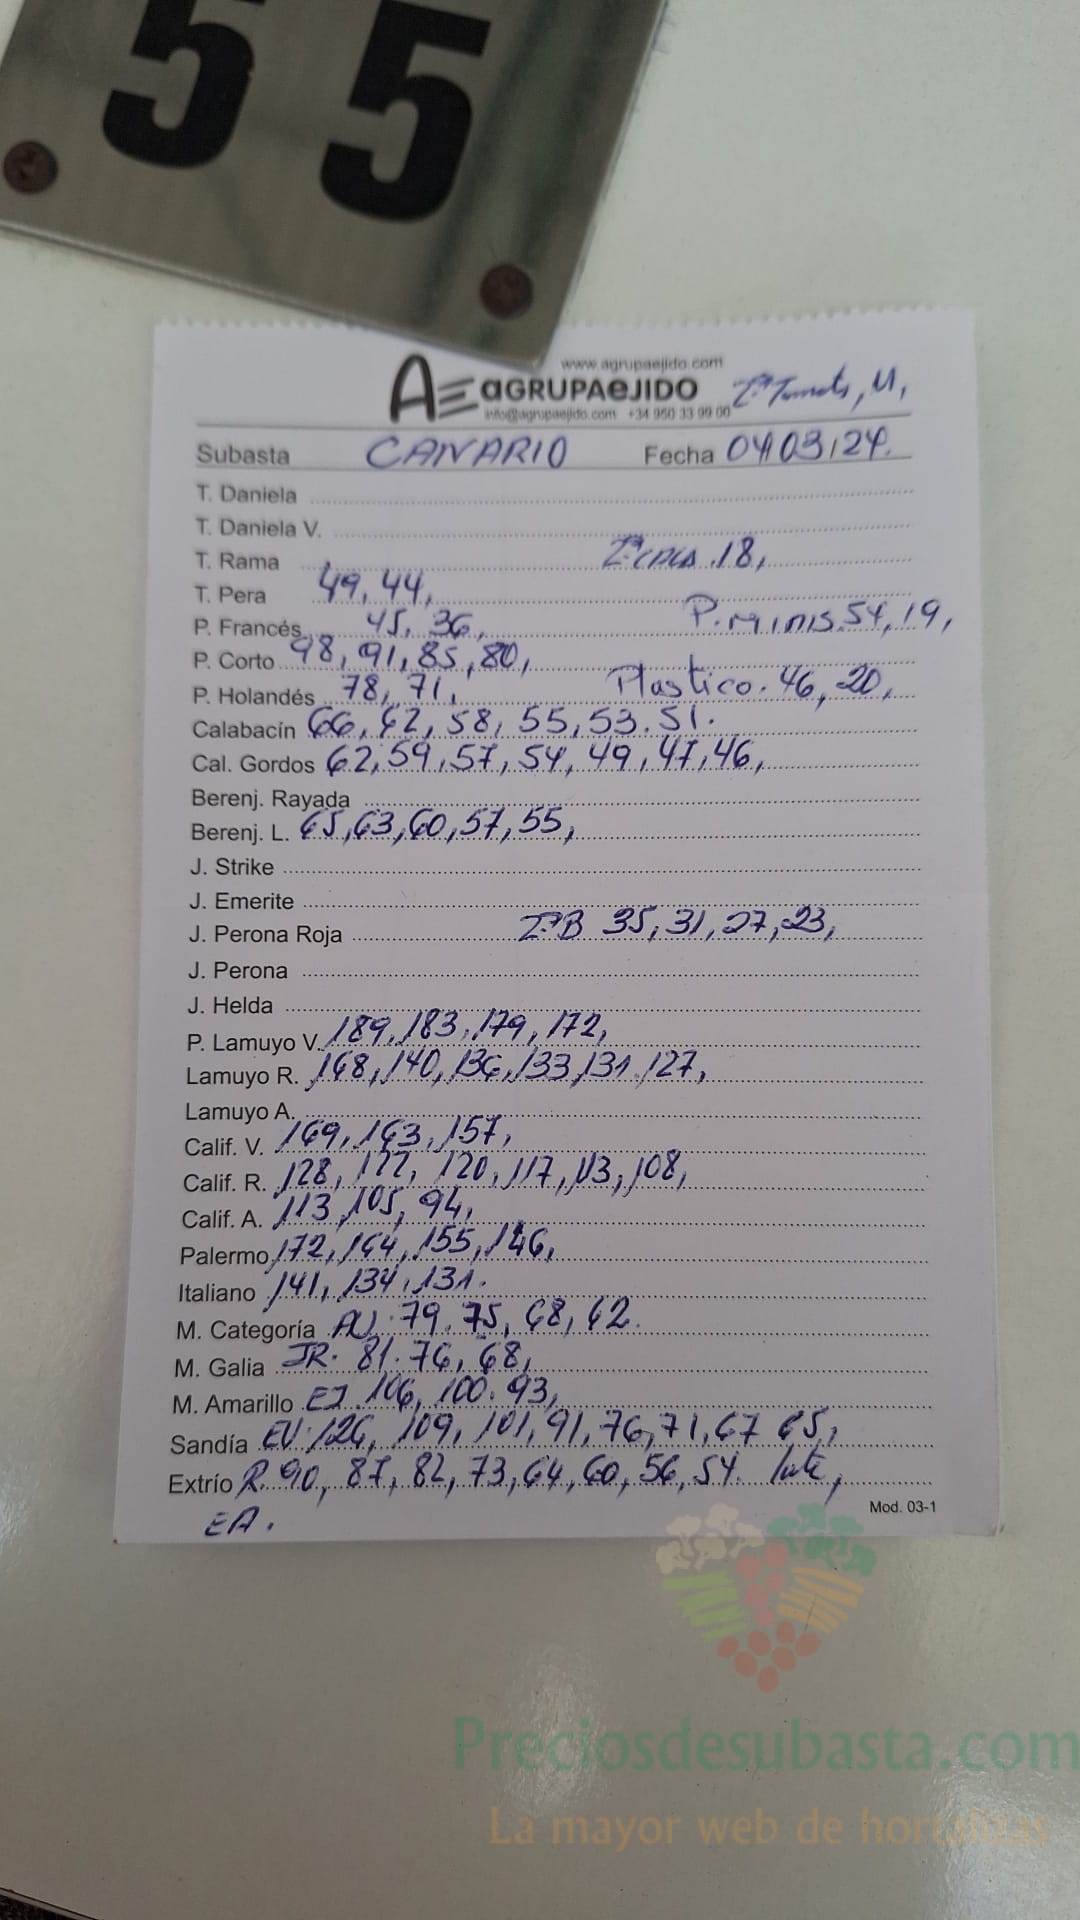 55
www.agrupaejido.com
AGRUPAEJIDO
info@agrupaejido.com +34 950 33 99 00
M,
Subasta CANARIO Fecha 04/03/24.
T. Daniela
T. Daniela V.
T. Rama 18,
T. Pera 49, 44,
P. Francés 45, 36, P. minis. 54, 19,
P. Corto 98, 91, 85, 80,
P. Holandés 78, 71, Plastico. 46, 20,
Calabacín 66, 62, 58, 55, 53. 51.
Cal. Gordos 62, 59, 57, 54, 49, 47, 46,
Berenj. Rayada
Berenj. L. 65, 63, 60, 57, 55,
J. Strike
J. Emerite
J. Perona Roja 2ªB 35, 31, 27, 23,
J. Perona
J. Helda
P. Lamuyo V. 189, 183, 179, 172,
Lamuyo R. 168, 140, 136, 133, 131. 127,
Lamuyo A.
Calif. V. 169, 163, 157,
Calif. R. 128, 122, 120, 117, 113, 108,
Calif. A. 113, 105, 94,
Palermo 172, 164, 155, 146,
Italiano 141, 134, 131.
M. Categoría AU. 79. 75, 68, 62.
M. Galia JR. 81. 76, 68,
M. Amarillo EJ. 106, 100. 93,
Sandía EV. 126, 109, 101, 91, 76, 71, 67 65,
Extrío R. 90, 87, 82, 73, 64, 60, 56, 54.
Mod. 03-1
EA.
Preciosdesubasta.com
La mayor web de hortalizas